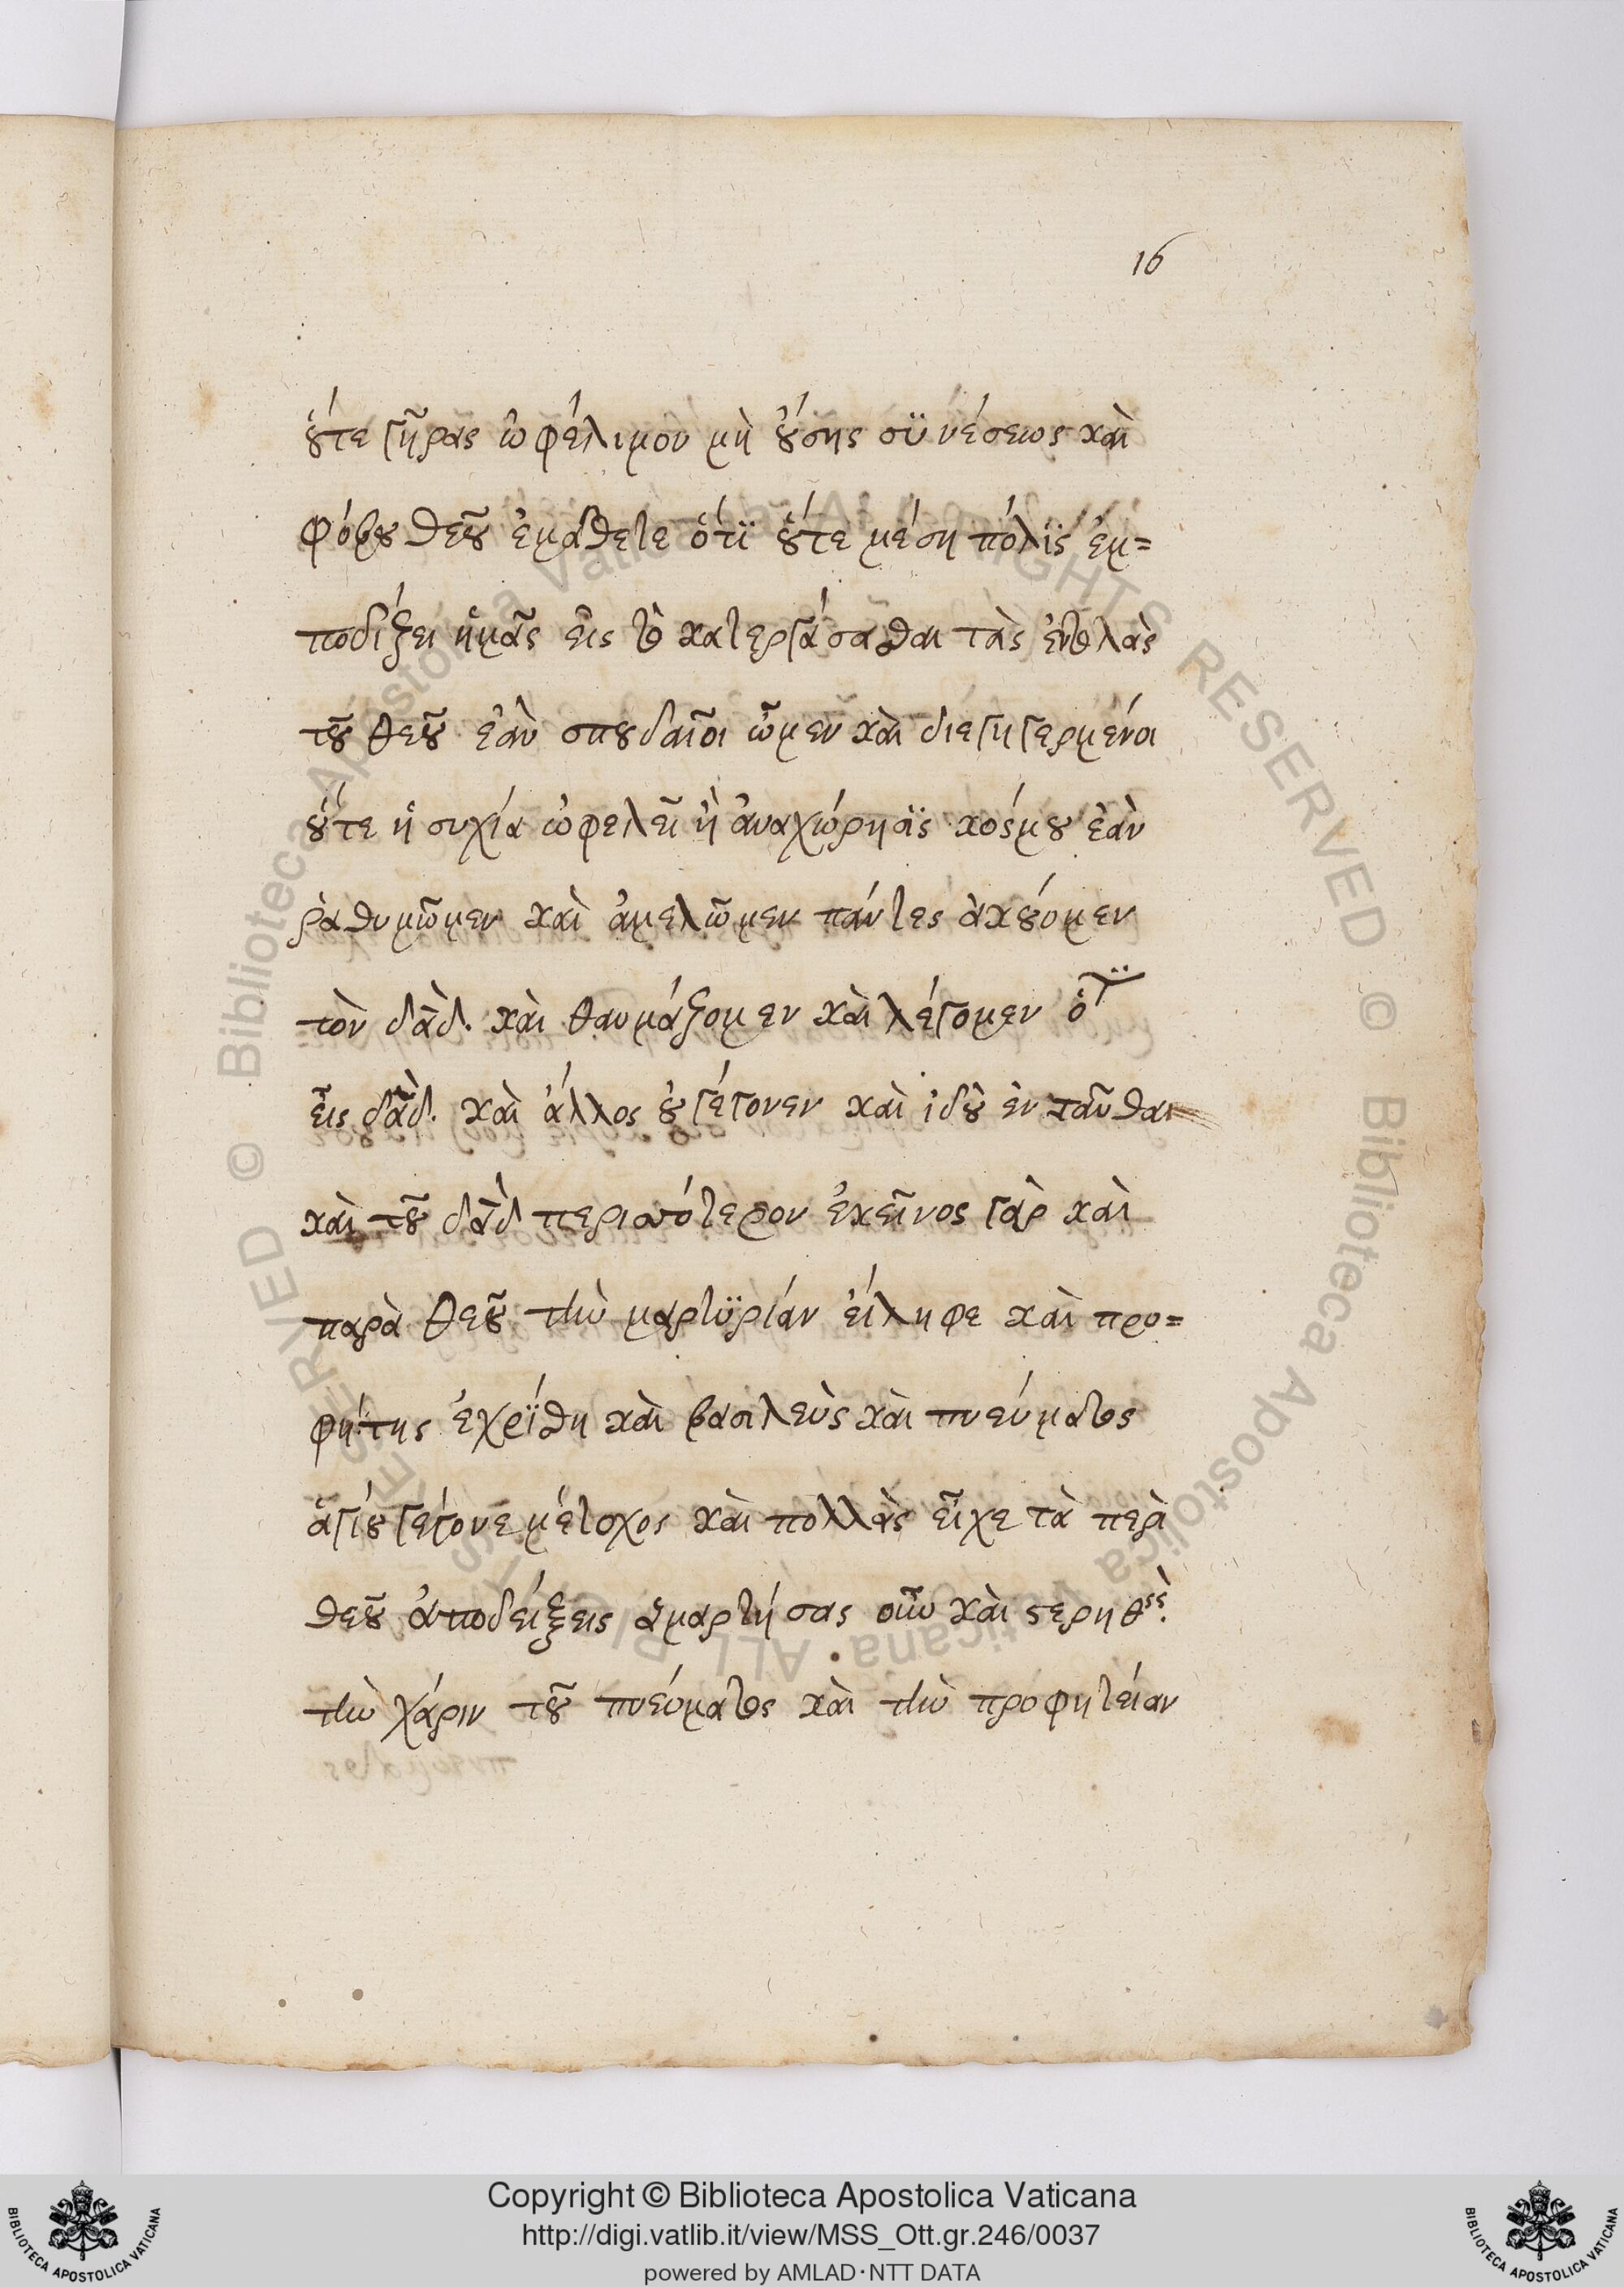 16
ȣ́τε γῆρας ὠφέλιμον μὴ ȣ́σης σϋνέσεως καὶ
φόβȣ θεȣ͂ ἐμάθετε ὅτϊ ȣ́τε μέση πόλϊς ἐμ=
ποδίζει ἡμᾶς εἰς τὸ κατεργάσασθαι τὰς ἐντολὰς
τȣ͂ θεȣ͂ ἐὰν σπȣδαῖοι ὦμεν καὶ διεγηγερμένοι
ȣ́τε ἡσυχία ὠφελεῖ ἢ ἀναχώρησϊς κόσμȣ ἐὰν
ῥαθυμῶμεν καὶ ἀμελῶμεν πάντες ἀκȣ́ομεν
τὸν δᾱδ. καὶ θαυμάζομεν καὶ λέγομεν ὅτϊ
εἷς δᾱδ. καὶ ἄλλος ȣ γέγονεν καὶ ἰδȣ̀ ἐνταῦθαι
καὶ τȣ͂ δᾱδ περισσότερον ἐκεῖνος γὰρ καὶ
παρὰ θεȣ͂ τὴν μαρτϋρίαν εἴληφε καὶ προ=
φήτης ἐχρΐσθη καὶ βασιλεὺς καὶ πνεύματος
ἁγίȣ γέγονε μέτοχος καὶ πολλὰς εἶχε τὰ περὶ
θεȣ͂ ἀποδείξεις ἁμαρτήσας οὖν καὶ στερηθεὶς
τὴν χάριν τȣ͂ πνεύματος καὶ τὴν προφητείαν
Copyright © Biblioteca Apostolica Vaticana
http://digi.vatlib.it/view/MSS_Ott.gr.246/0037
powered by AMLAD·NTT DATA